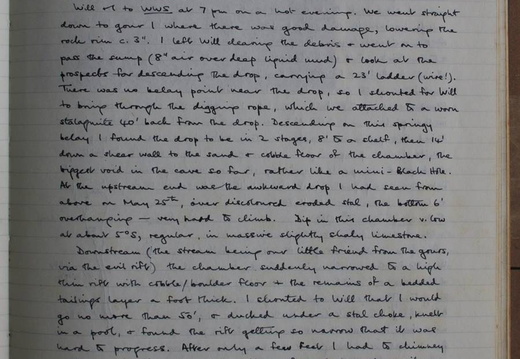 Will & I to WWS at 7 pm on a hot evening. We went straight
down to gour 1 where there was good damage, lowering the
rock rim c. 3". I left Will clearing the debris & went on to
pass the sump (8" air over deep liquid mud) & look at the
prospects for descending the drop, carrying a 23' ladder (wire!).
There was no belay point near the drop, so I shouted for Will
to bring through the digging rope, which we attached to a worn
stalagmite 40' back from the drop. Descending on this springy
belay I found the drop to be in 2 stages, 8' to a shelf, then 14'
down a sheer wall to the sand & cobble floor of the chamber, the
biggest void in the cave so far, rather like a mini-Black Hole.
At the upstream end was the awkward drop I had seen from
above on May 25th, over discoloured eroded stal, the bottom 6'
overhanging — very hard to climb. Dip in this chamber v. low
at about 5°S, regular, in massive slightly shaly limestone.
Downstream (the stream being our little friend from the gours,
via the evil rift) the chamber suddenly narrowed to a high
thin rift with cobble/boulder floor & the remains of a bedded
tailings layer a foot thick. I shouted to Will that I would
go no more than 50', & ducked under a stal choke, knelt
in a pool, & found the rift getting so narrow that it was
hard to progress. After only a few feet I had to chimney